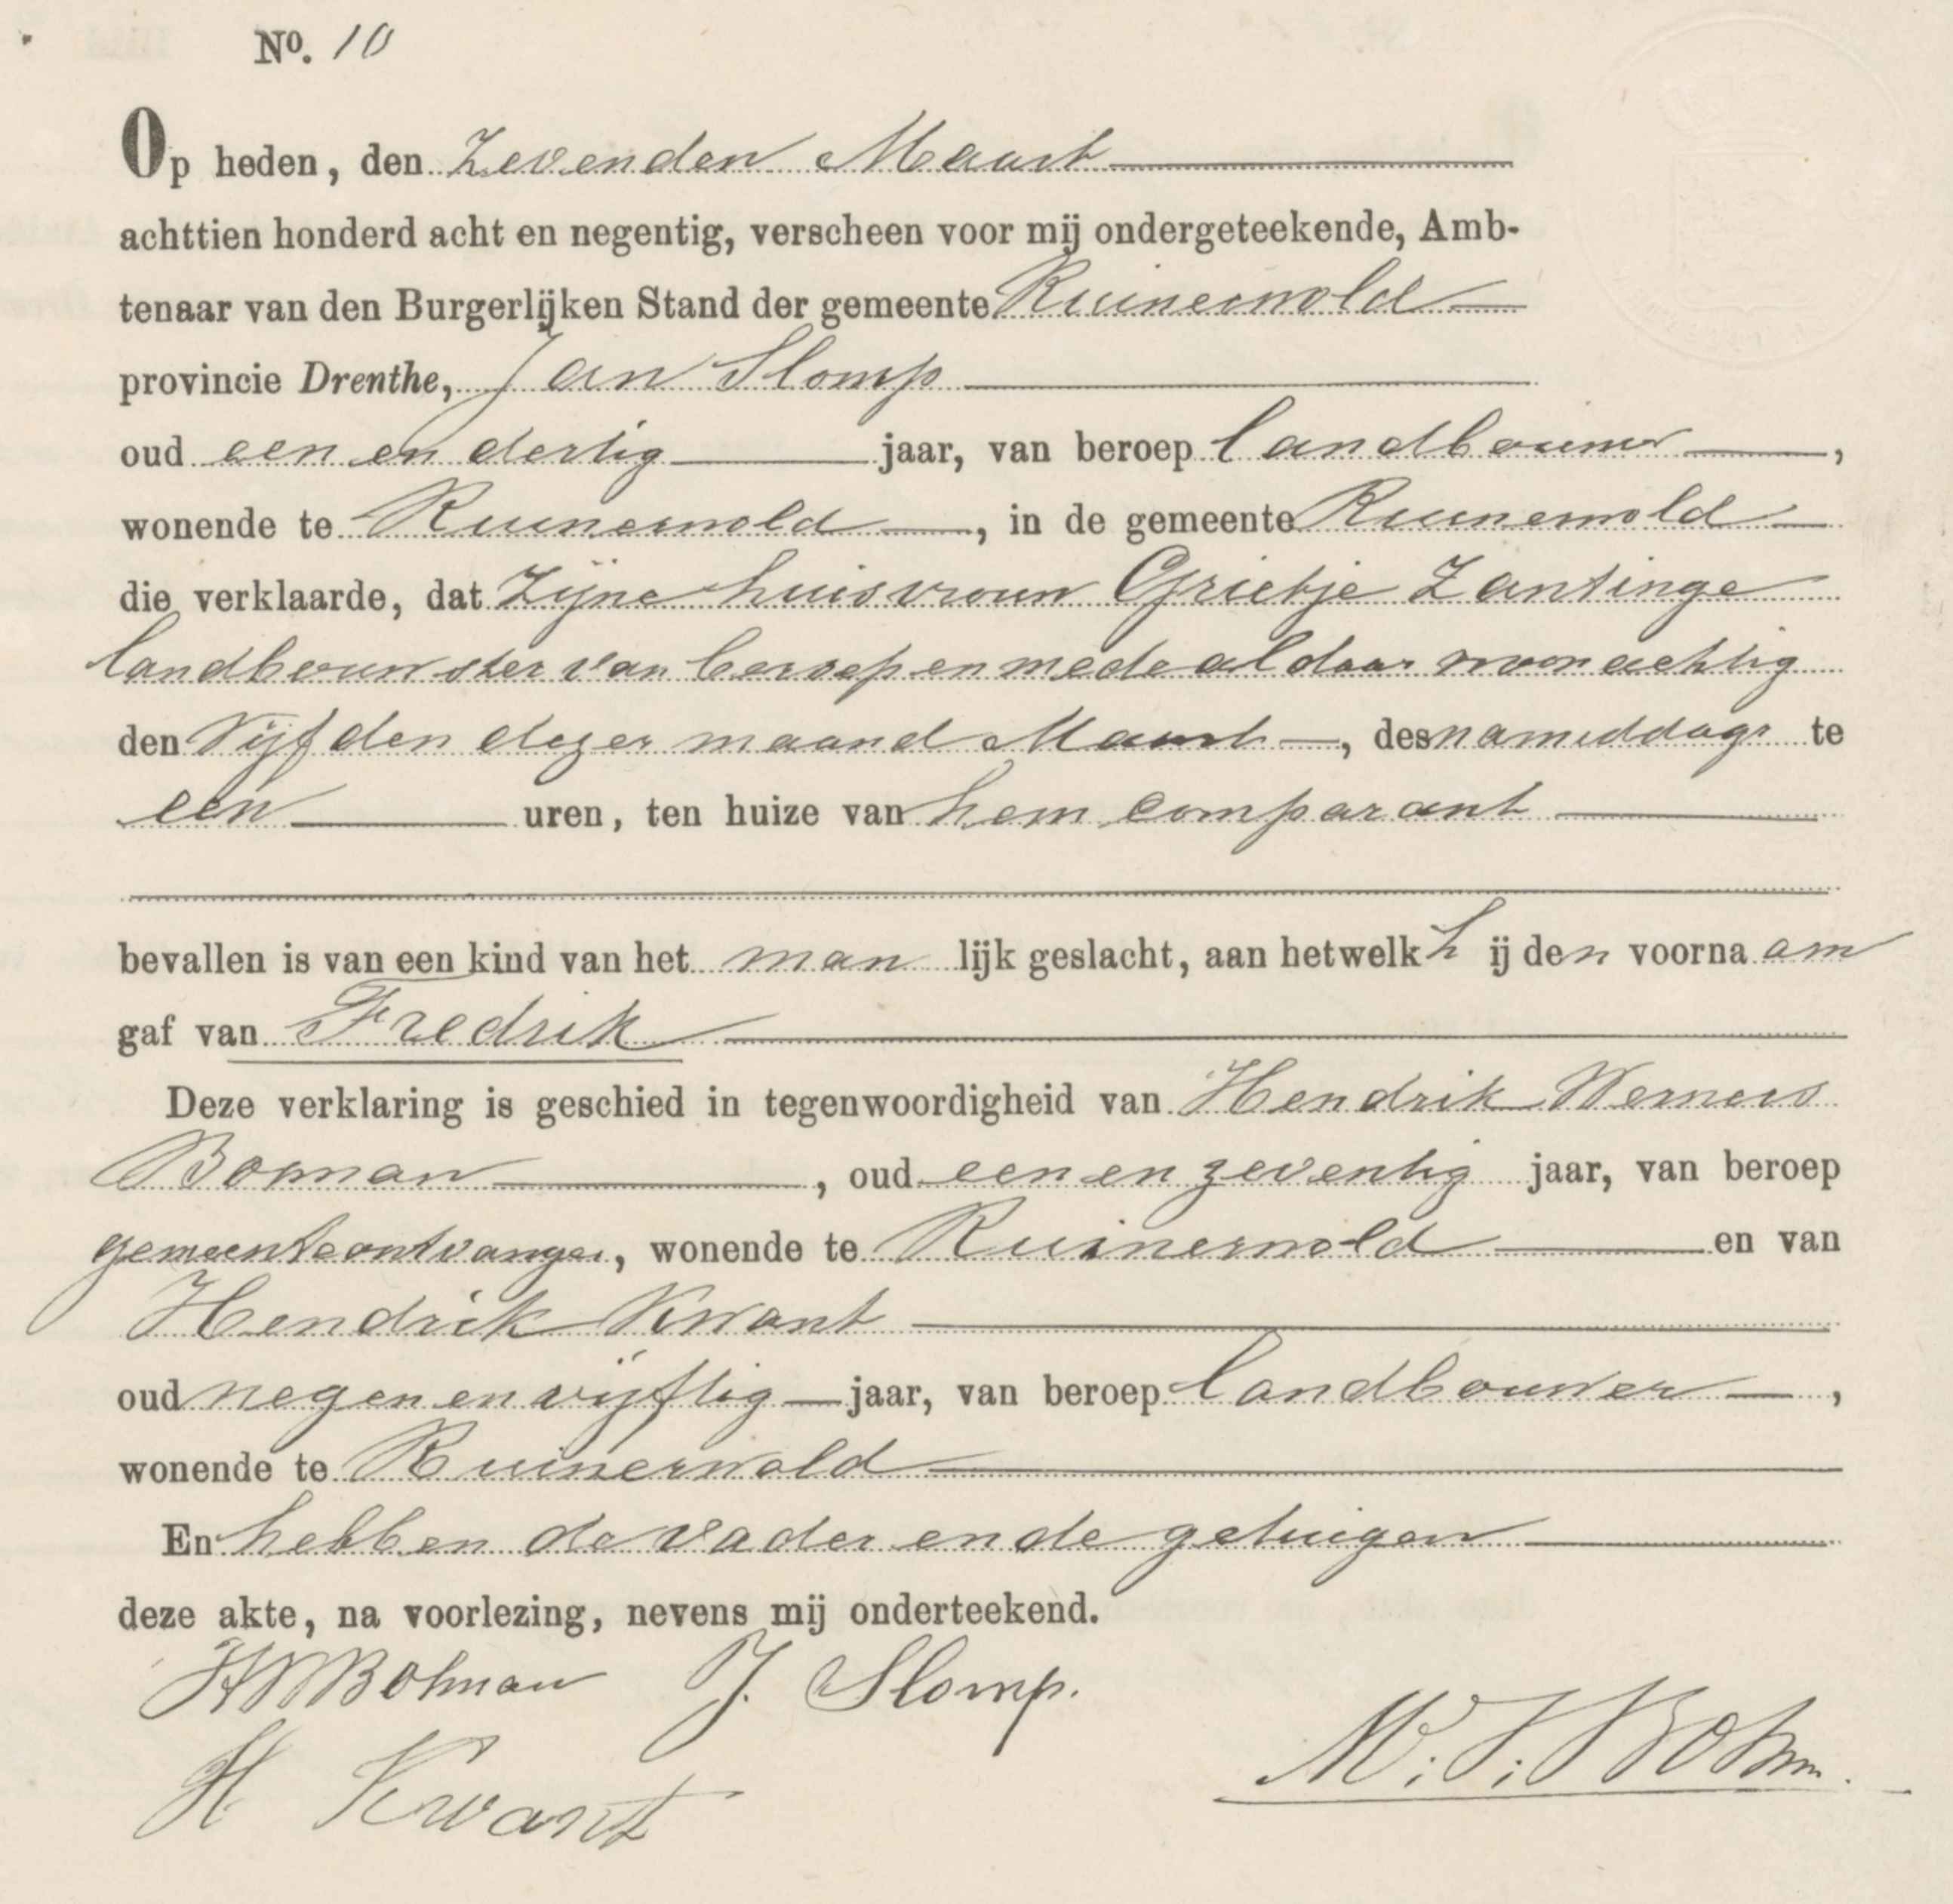 No. 10
Op heden, den Zevenden Maart
achttien honderd acht en negentig, verscheen voor mij ondergeteekende, Amb-
tenaar van den Burgerlijken Stand der gemeente Ruinerwold
provincie Drenthe, Jan Slomp
oud een en dertig jaar, van beroep landbouwer,
wonende te Ruinerwold, in de gemeente Ruinerwold
die verklaarde, dat Zijne huisvrouw Grietje Zantinge
landbouwster van beroep en mede aldaar woonachtig
den Vijfden dezer maand Maart, des namiddags te
een uren, ten huize van hem comparant
bevallen is van een kind van het man lijk geslacht, aan hetwelk h ij den voorna am
gaf van Fredrik
Deze verklaring is geschied in tegenwoordigheid van Hendrik Werners
Bohman, oud een en zeventig jaar, van beroep
gemeenteontvanger, wonende te Ruinerwold en van
Hendrik Kwant
oud negen en vijftig jaar, van beroep landbouwer,
wonende te Ruinerwold
En hebben de vader en de getuigen
deze akte, na voorlezing, nevens mij onderteekend.
HWBohman J. Slomp.
H Kwant